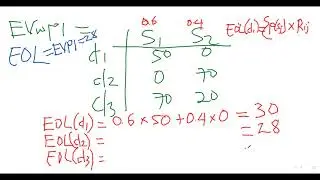 EVwp1 =
EOL=EVP1=28
0.6 0.4
S1 S2
d1 50 0
d2 0 70
d3 70 20
EOL(d1)=Σp(sj)×Rij
EOL(d1) = 0.6×50+0.4×0 = 30
EOL(d2) = = 28
EOL(d3) =